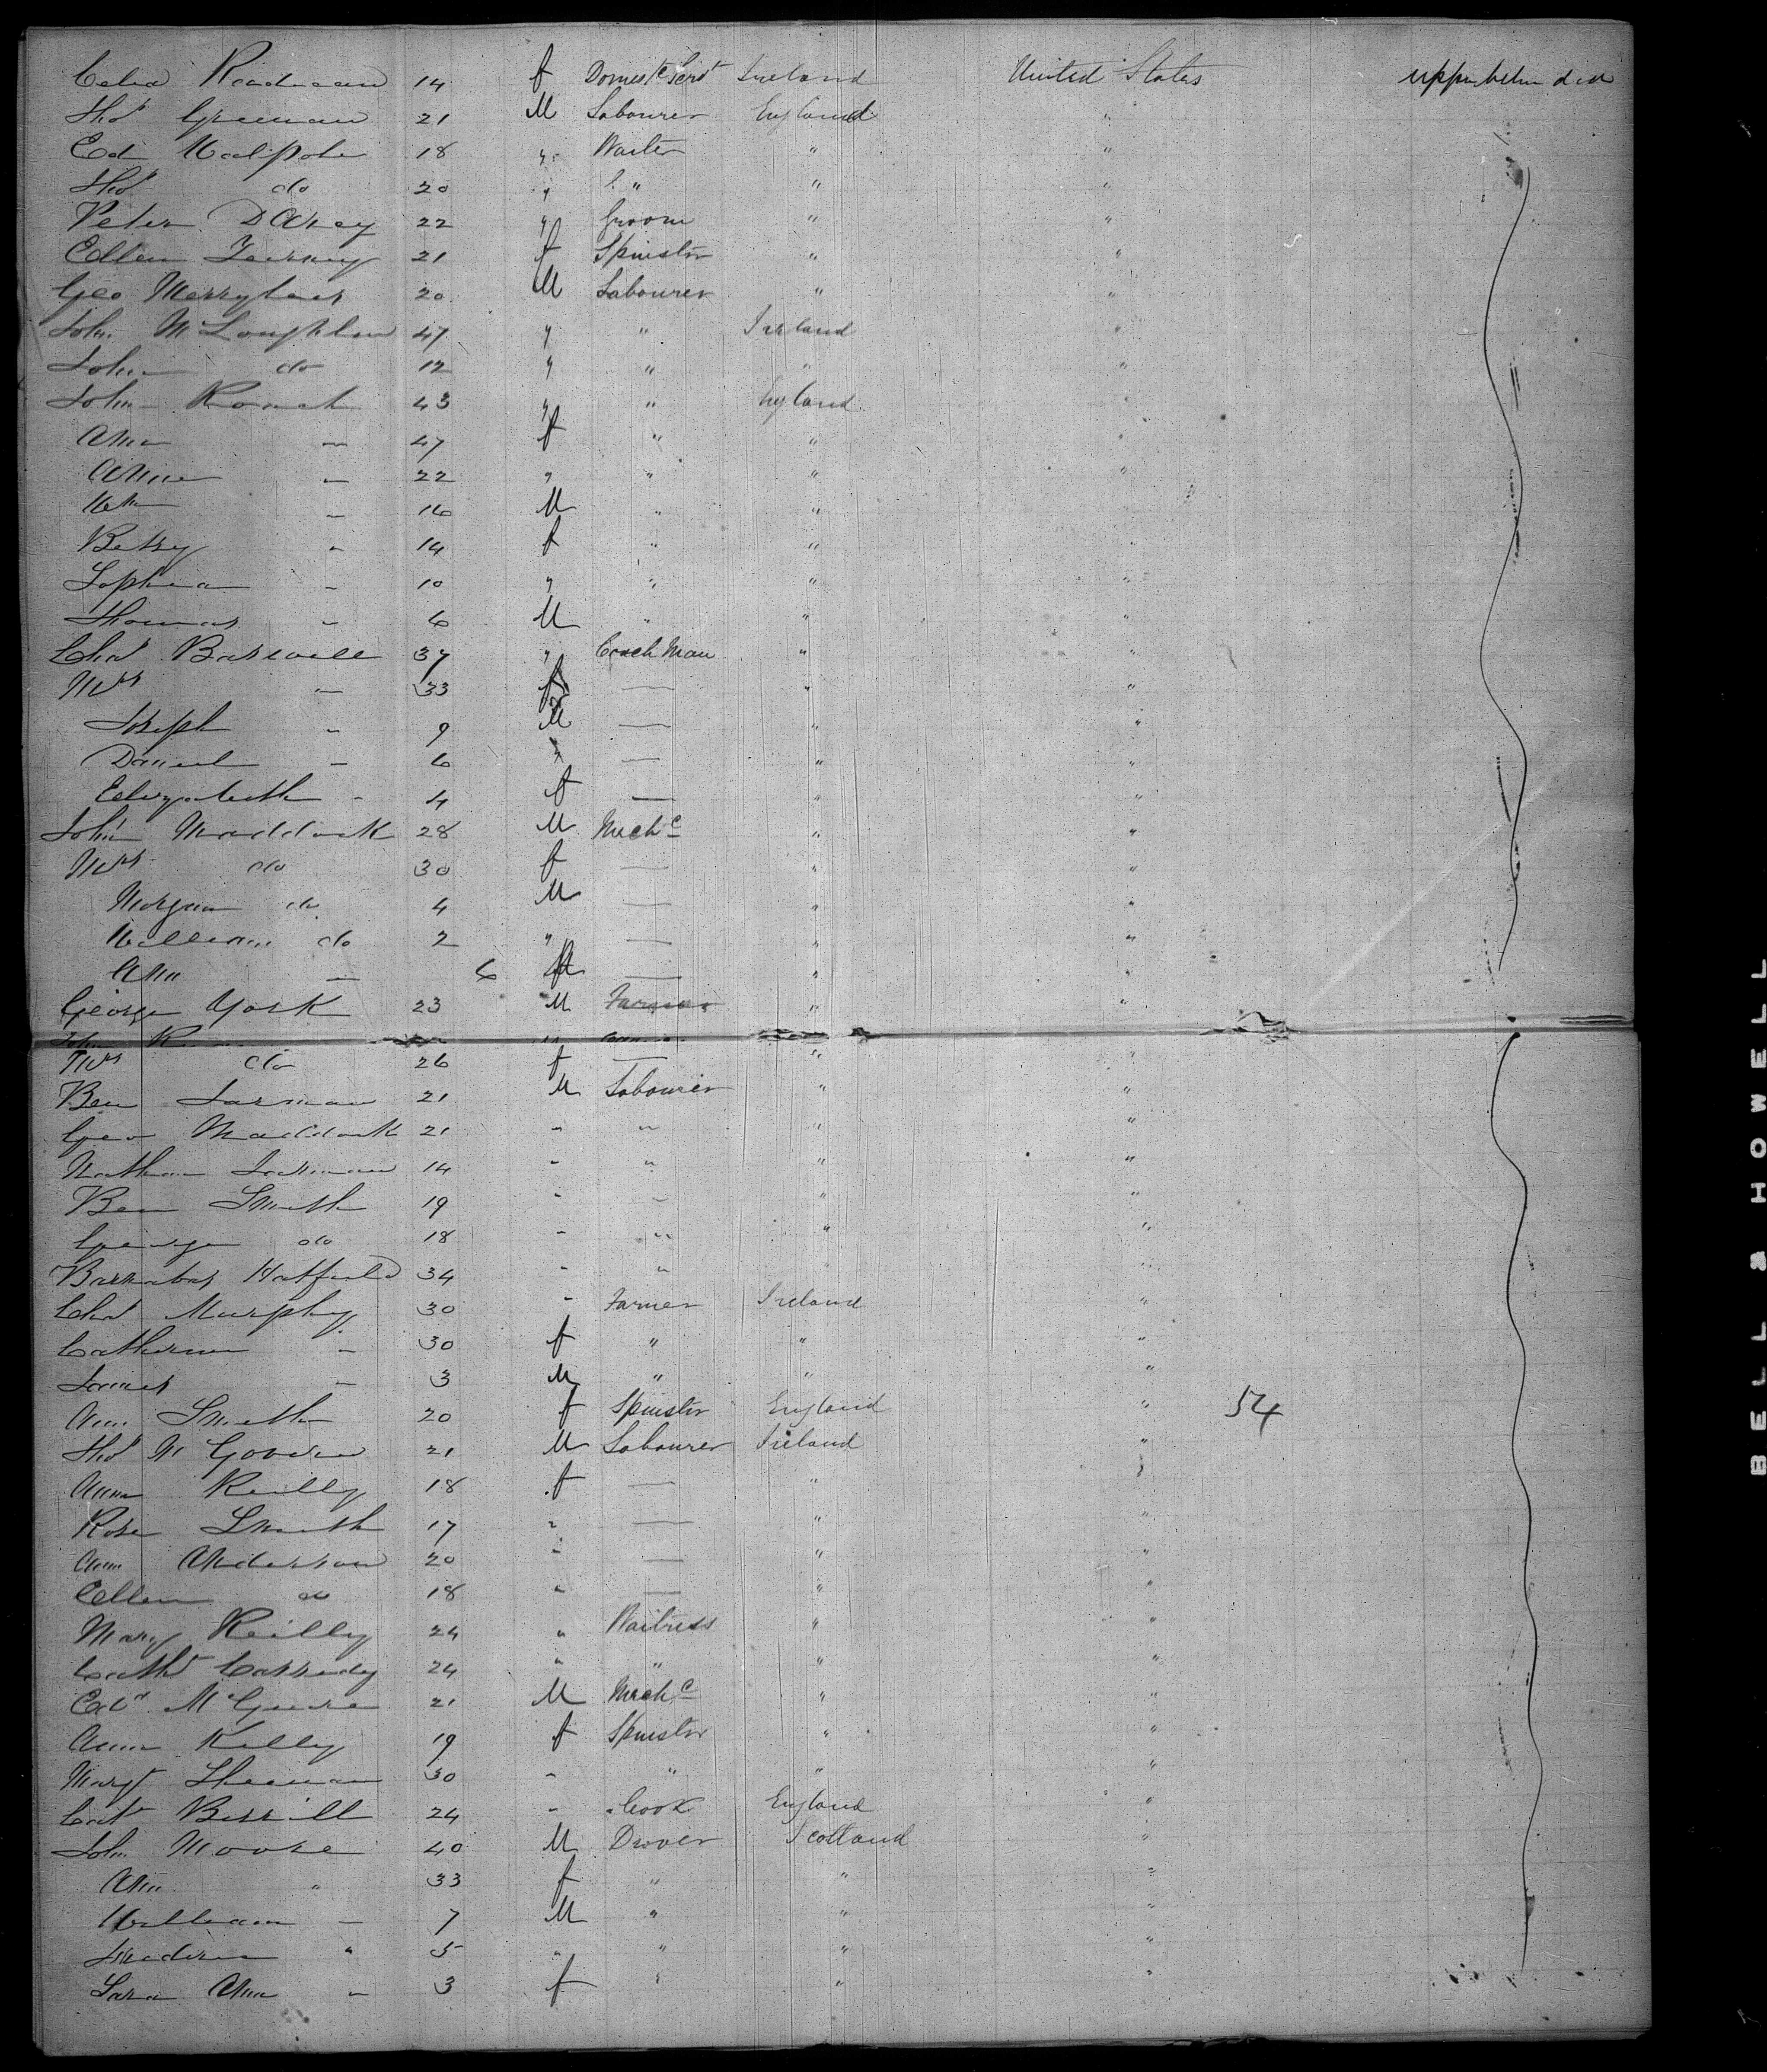 Celia 14 f Domestc Servt Ireland United States upper betwn deck
Thos Greenan 21 M Labourer England "
Ed Walpole 18 " Waiter " "
Thos do 20 " " " "
Peter DArcy 22 " Groom " "
Ellen 21 f Spinster " "
Geo 20 M Labourer " "
John McLoughlin 47 " " Ireland "
John do 12 " " " "
John Roach 43 " " England "
Ann — 47 f " " "
Anne — 22 " " " "
Wm — 16 M " " "
Betsy " 14 f " " "
Sophia — 10 " " " "
Thomas — 6 M " " "
Chas Barwell 37 " Coach Man " "
Mrs — 33 f — " "
Joseph — 9 M — " "
Daniel — 6 " — " "
Elizabeth — 4 f — " "
John Maddock 28 M Mechc " "
Mrs do 30 f — " "
Morgan do 4 M — " "
William do 2 " — " "
Ann — 6 f — " "
George York 23 M Farmer " "
John
Mrs do 26 f — " "
Ben Jarman 21 M Labourer " "
Geo Maddock 21 " " " "
Nathan Jarman 14 " " " "
Ben Smith 19 " " " "
George do 18 " " " "
Barnabas Hatfield 34 " " " "
Chas Murphy 30 " Farmer Ireland "
Catherine — 30 f " " "
James — 3 M " " "
Ann Smith 20 f Spinster England " 54
Thos McGovern 21 M Labourer Ireland "
Ann Reilly 18 f — " "
Rose Smith 17 " — " "
Ann Anderson 20 " — " "
Ellen do 18 " — " "
Mary Reilly 24 " Waitress " "
Cath Cassedy 24 " " " "
Edwd McGuire 21 M Mechc " "
Anne Kelly 19 f Spinster " "
Margt Sheenan 30 " " " "
Cat Berrill 24 " Cook England "
John Moore 40 M Drover Scotland "
Ann " 33 f " " "
William — 7 M " " "
" 5 " " " "
Sara Ann — 3 f " " "